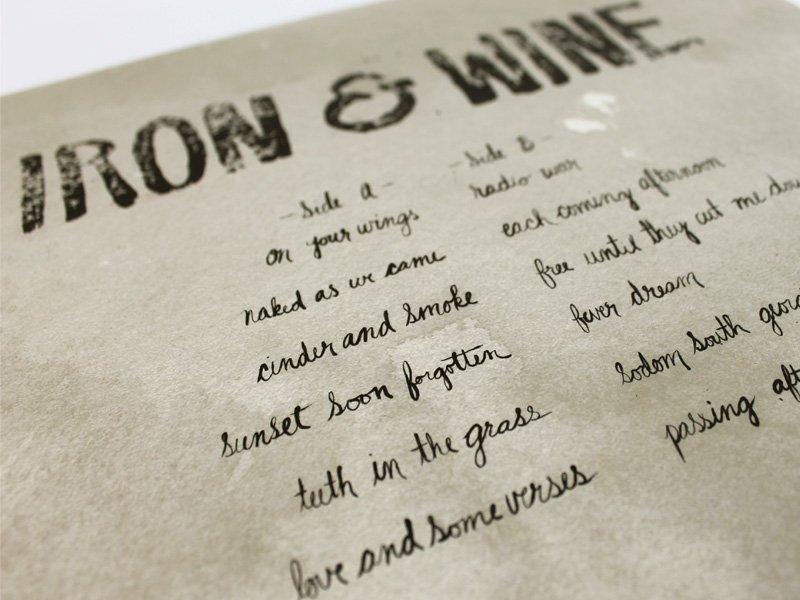 IRON & WINE
- Side A -
on your wings
naked as we came
cinder and smoke
sunset soon forgotten
teeth in the grass
love and some verses
- Side B -
radio war
each coming afternoon
free until they cut me dow
fever dream
sodom south georg
passing aft